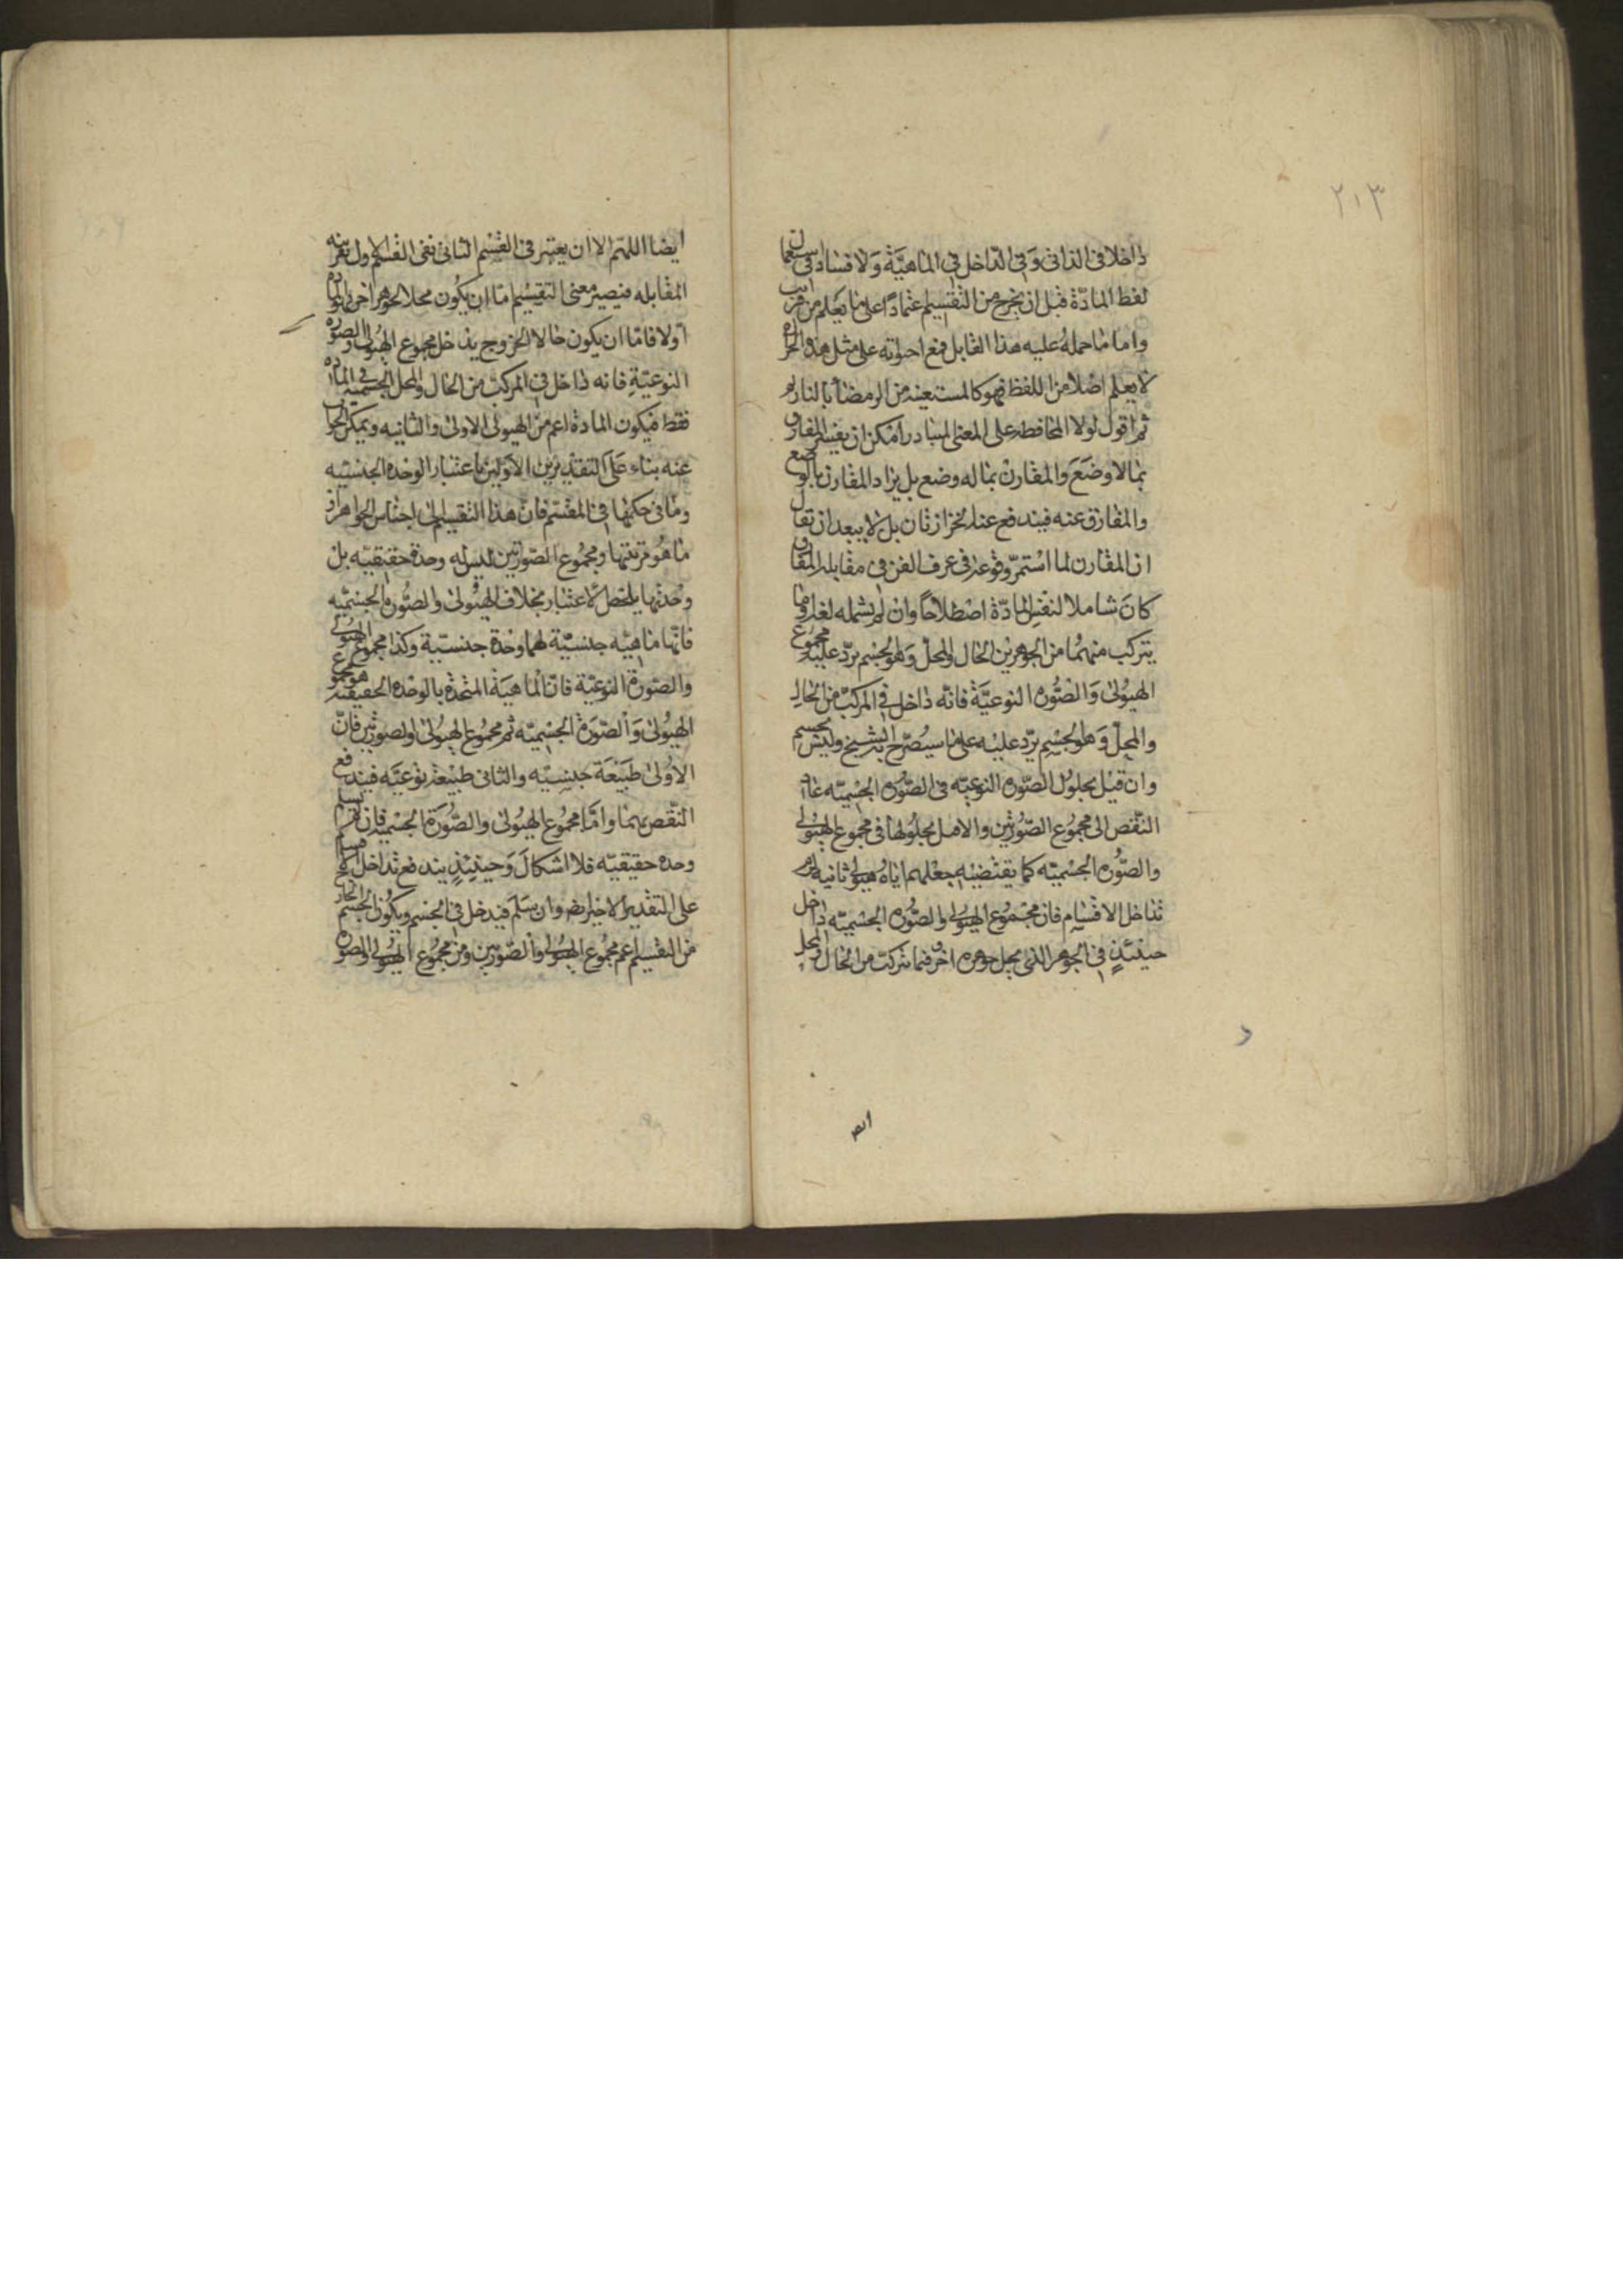 ٢١٣
داخلا فى الذاتى وفى الداخل فى الماهيّة ولا فساد فى استعمال
لفظ المادّة قبل ان يخرج من التقسيم اعتمادًا على ما يعلم من قريب
واما ما حمله عليه هذا القابل فمع احواته على مثل هذه الحزازة
لا يعلم اصلا من اللفظ فهو كالمستعينه من الرمضا بالنار
ثم اقول لولا المحافظة على المعنى المتبادر امكن ان يفسر المفارق
بما لا وضع والمقارن بما له وضع بل يراد المقارن بالوضع
والمفارق عنه فيندفع عنا الحزازتان بل لا يبعد ان تقال
ان المقارن لما استمرّ وقوعه فى عرف الفن فى مقابله المفارق
كان شاملا لنفس المادّة اصطلاحًا وان لم يشمله لغة وما
يتركب منهما من الجوهرين الحال والمحلّ وهو الجسم يردّ عليه مجموع
الهيولى والصّوره النوعيّة فانّه داخل فى المركب من الحال
والمحلّ وهو الجسم يردّ عليه على ما سيُصرّح به الشيخ وليس بجسم
وان قيل بحلول الصّوره النوعيّه فى الصّوره الجسميّه عاد
النقض الى مجموع الصّورتين والا فبل بحلولها فى مجموع الهيولى
والصّوره الجسميّه كما يقتضيه جعلهم اياه هيولى ثانيه لزم
تداخل الاقسام فان مجموع الهيولى والصّوره الجسميّه داخل
حينئذٍ فى الجوهر الذى محل جوهر اخر وفيما تركب من الحال والمحل
ايضا
ايضا اللهمّ الا ان يعتبر فى القسم الثانى نفى القسم الاول بقرينه
المقابله فيصير معنى التقسيم امّا ان يكون محلا لجوهر اخر وهو المادّه
او لا فامّا ان يكون حالا الخ وح يدخل مجموع الهيولى والصوره
النوعيّة فانه داخل فى المركب من الحال والمحل الجسميّه فى المادّه
فقط فيكون المادة اعم من الهيولى الاولى والثانيه ويمكن الجواب
عنه بناء على التقديرين الاوّلين باعتبار الوحده الجنسيّه
وما فى حكمها فى المقسم فان هذا التقسيم الى اجناس الجواهر او
ما هو قريبها ومجموع الصّورتين ليس له وحدة حقيقيّه بل
وحدتها بمحض الاعتبار بخلاف الهيولى والصّوره الجسميّه
فانّها ماهيّه جنسيّة لهما وحدة جنسيّة وكذا مجموع الهيولى
والصّورة النوعيّة فانّ الماهيّة المتحدة بالوحده الحقيقيّه هو مجموع
الهيولى والصّورة الجسميّه ثم مجموع الهيولى والصورتين فانّ
الاولى طبيعة جنسيّه والثانى طبيعة نوعيّه فيندفع
النّقض بهما وامّا مجموع الهيولى والصّورة الجسميّه فان لم يسلم
وحده حقيقيّه فلا اشكال وحينئذٍ يندفع تداخل الاقسام
على التقدير الاخير ايضا وان سلّم فيدخل فى الجسم ويكون الجسم الخارج
من التقسيم اعم مجموع الهيولى والصّورتين ومن مجموع الهيولى والصوره